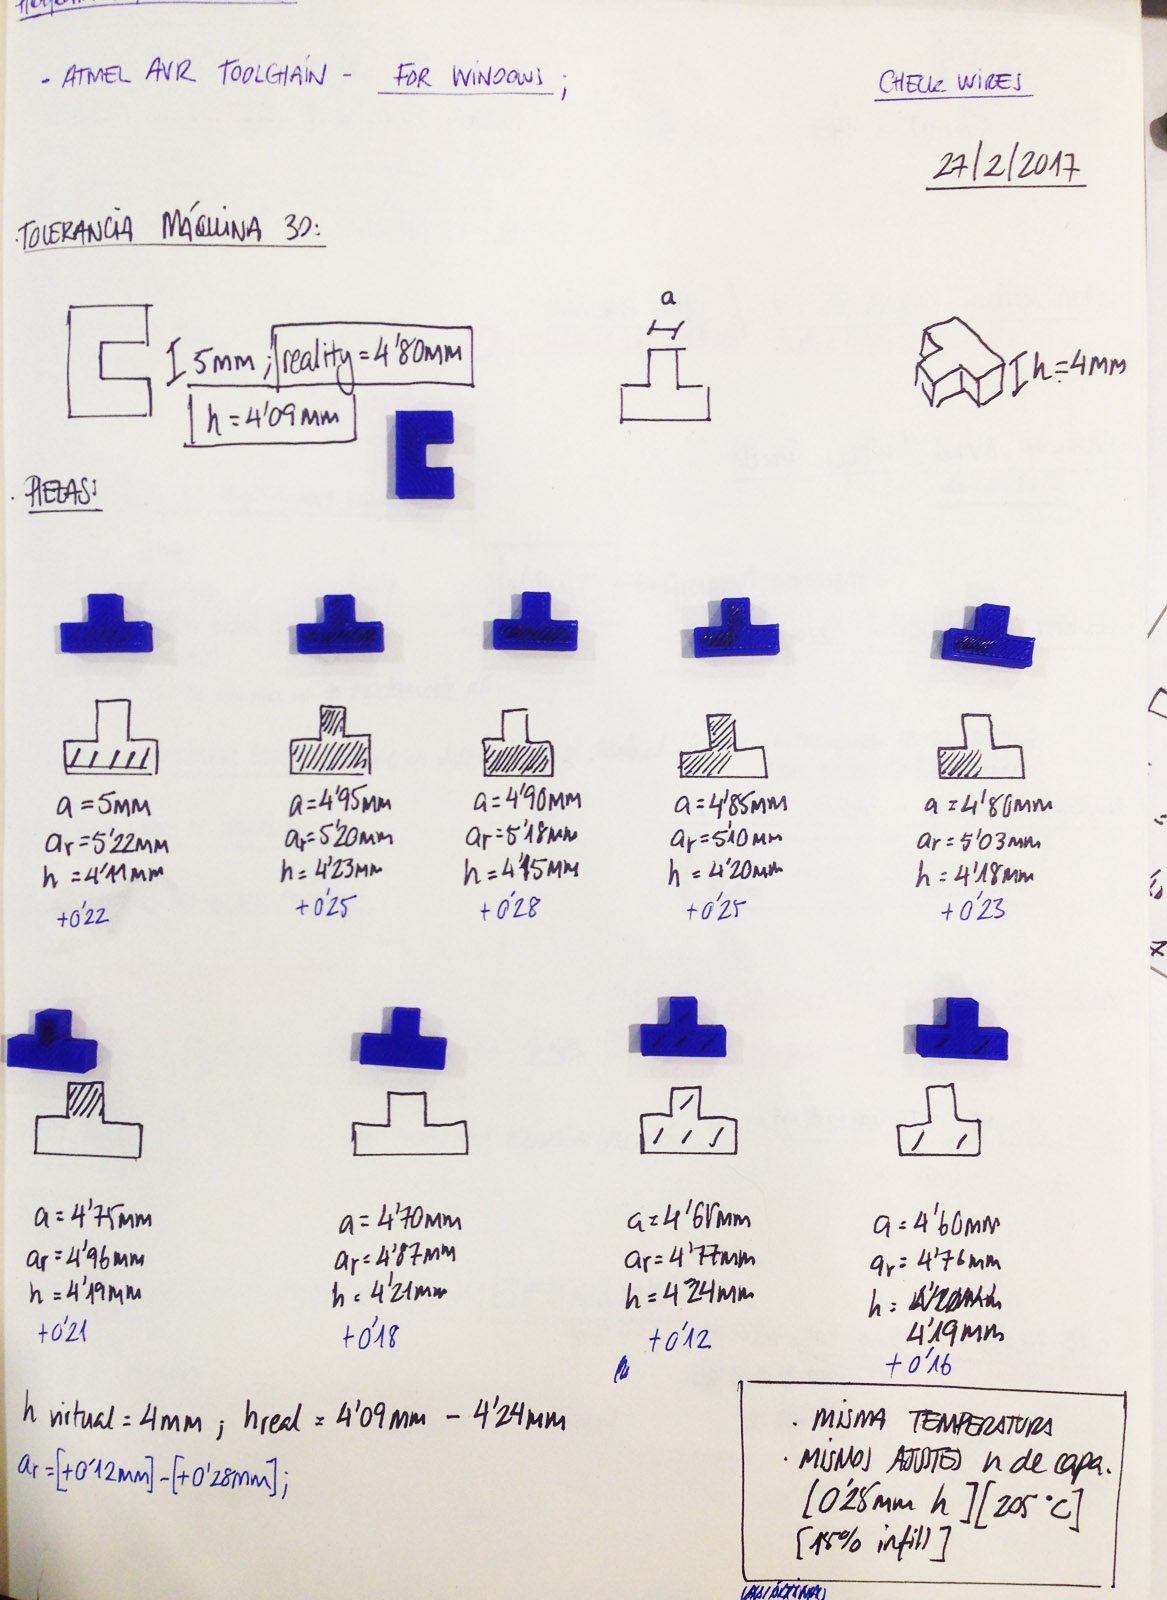 - ATMEL AVR TOOLCHAIN - FOR WINDOWS;
CHECK WIRES
27/2/2017
·TOLERANCIA MÁQUINA 3D:
a
5mm; reality = 4'80mm
h = 4'09mm
h = 4mm
· PIEZAS:
a = 5mm
ar = 5'22mm
h = 4'11mm
+0'22
a = 4'95mm
ar = 5'20mm
h = 4'23mm
+0'25
a = 4'90mm
ar = 5'18mm
h = 4'15mm
+0'28
a = 4'85mm
ar = 5'10mm
h = 4'20mm
+0'25
a = 4'80mm
ar = 5'03mm
h = 4'18mm
+0'23
a = 4'75mm
ar = 4'96mm
h = 4'19mm
+0'21
a = 4'70mm
ar = 4'87mm
h = 4'21mm
+0'18
a = 4'65mm
ar = 4'77mm
h = 4'24mm
+0'12
a = 4'60mm
ar = 4'76mm
h =
4'19mm
+0'16
h virtual = 4mm ; h real = 4'09mm - 4'24mm
ar = [+0'12mm] - [+0'28mm];
· MISMA TEMPERATURA
· MISMOS AJUSTES n de capa.
[0'25mm h] [205 °C]
[15% infill]